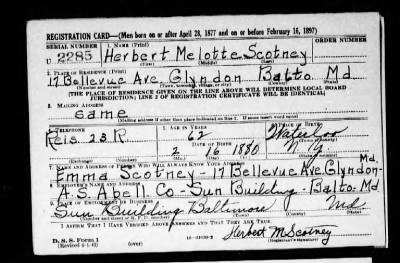 REGISTRATION CARD—(Men born on or after April 28, 1877 and on or before February 16, 1897)
SERIAL NUMBER 1. NAME (Print) ORDER NUMBER
U 2285 Herbert Melotte Scotney
(First) (Middle) (Last)
2. PLACE OF RESIDENCE (Print)
17 Bellevue Ave. Glyndon Balto. Md.
(Number and street) (Town, township, village, or city) (County) (State)
[THE PLACE OF RESIDENCE GIVEN ON THE LINE ABOVE WILL DETERMINE LOCAL BOARD
JURISDICTION; LINE 2 OF REGISTRATION CERTIFICATE WILL BE IDENTICAL]
3. MAILING ADDRESS
same
(Mailing address if other than place indicated on line 2. If same insert word same)
4. TELEPHONE 5. AGE IN YEARS 6. PLACE OF BIRTH
62 Waterloo
Reis. 23 R. DATE OF BIRTH
2 16 1880 N.Y.
(Exchange) (Number) (Mo.) (Day) (Yr.) (State or country)
7. NAME AND ADDRESS OF PERSON WHO WILL ALWAYS KNOW YOUR ADDRESS Md.
Emma Scotney - 17 Bellevue Ave. Glyndon-
8. EMPLOYER'S NAME AND ADDRESS
A.S. Abell Co - Sun Building - Balto. Md
9. PLACE OF EMPLOYMENT OR BUSINESS
Sun Building Baltimore Md.
(Number and street or R. F. D. number) (Town) (County) (State)
I AFFIRM THAT I HAVE VERIFIED ABOVE ANSWERS AND THAT THEY ARE TRUE.
D. S. S. Form 1
(Revised 4-1-42) (over) Herbert M Scotney
(Registrant's signature)